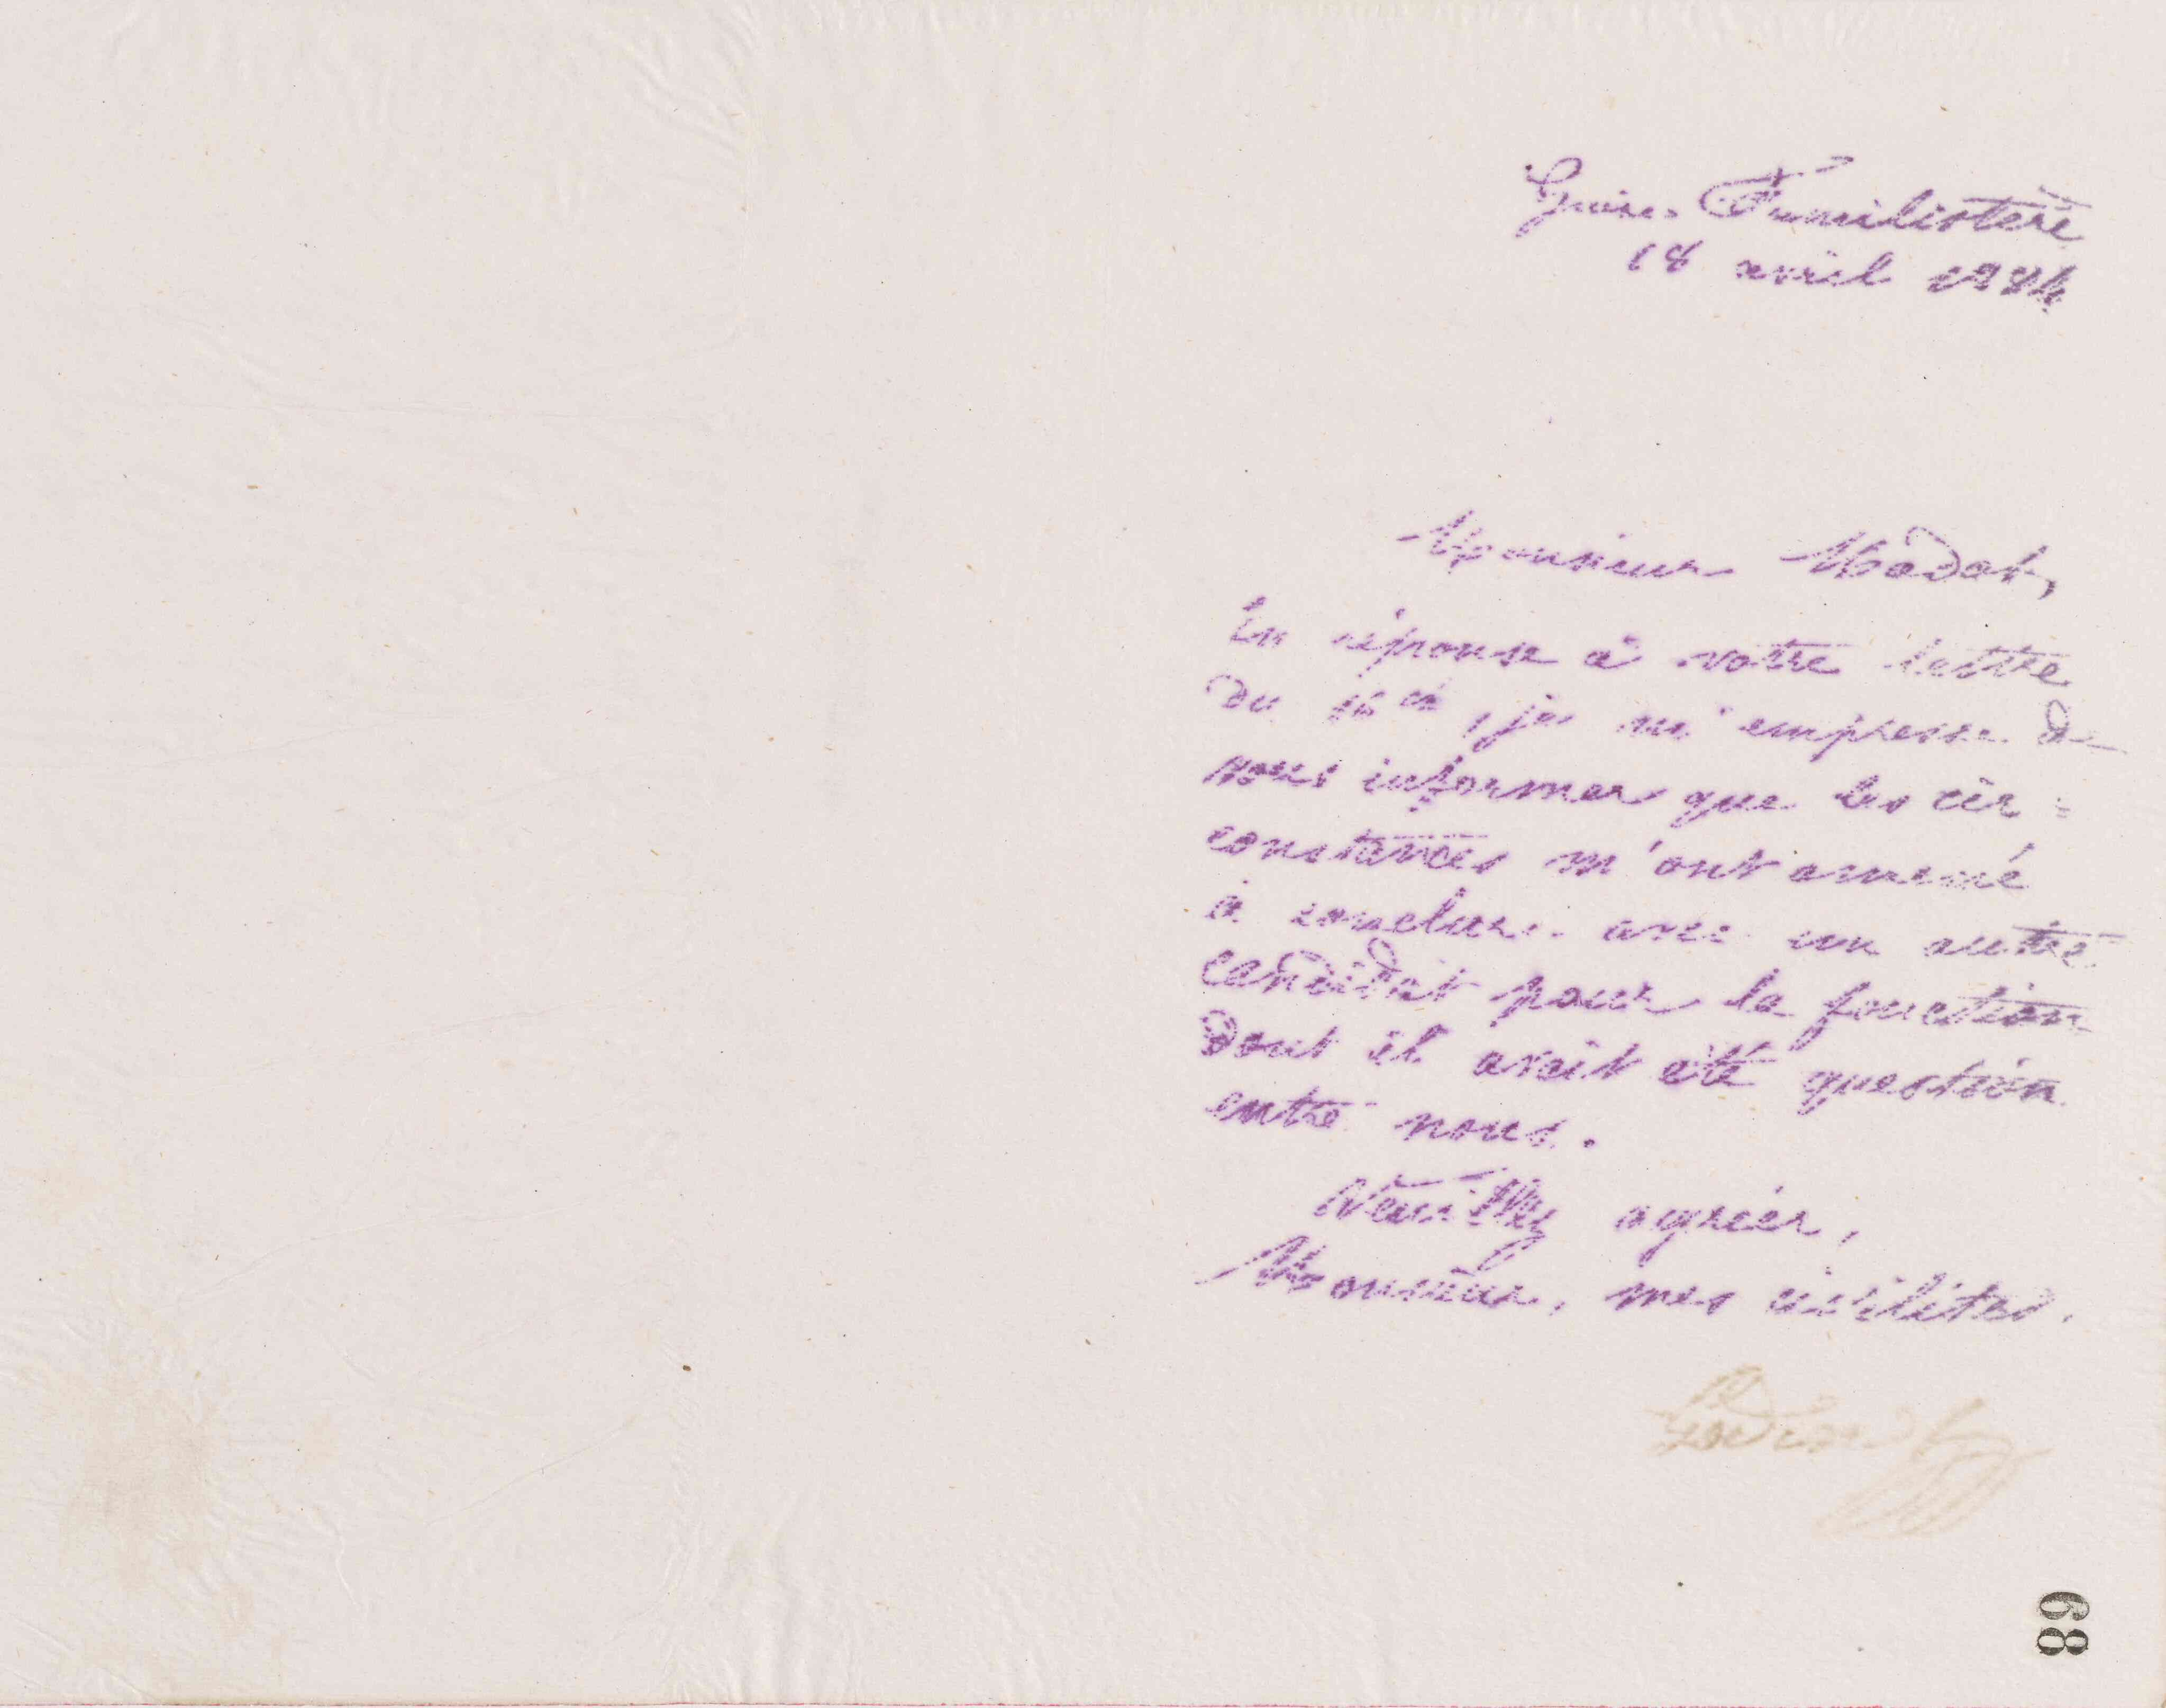 Guise. Familistère
18 avril 1884
Monsieur Modat,
En réponse à votre lettre
du 16 ct, je m'empresse de
vous informer que les cir=
constances m'ont amené
à conclure avec un autre
candidat pour la fonction
dont il avait été question
entre nous.
Veuillez agréer,
Monsieur, mes civilités.
Godin
68